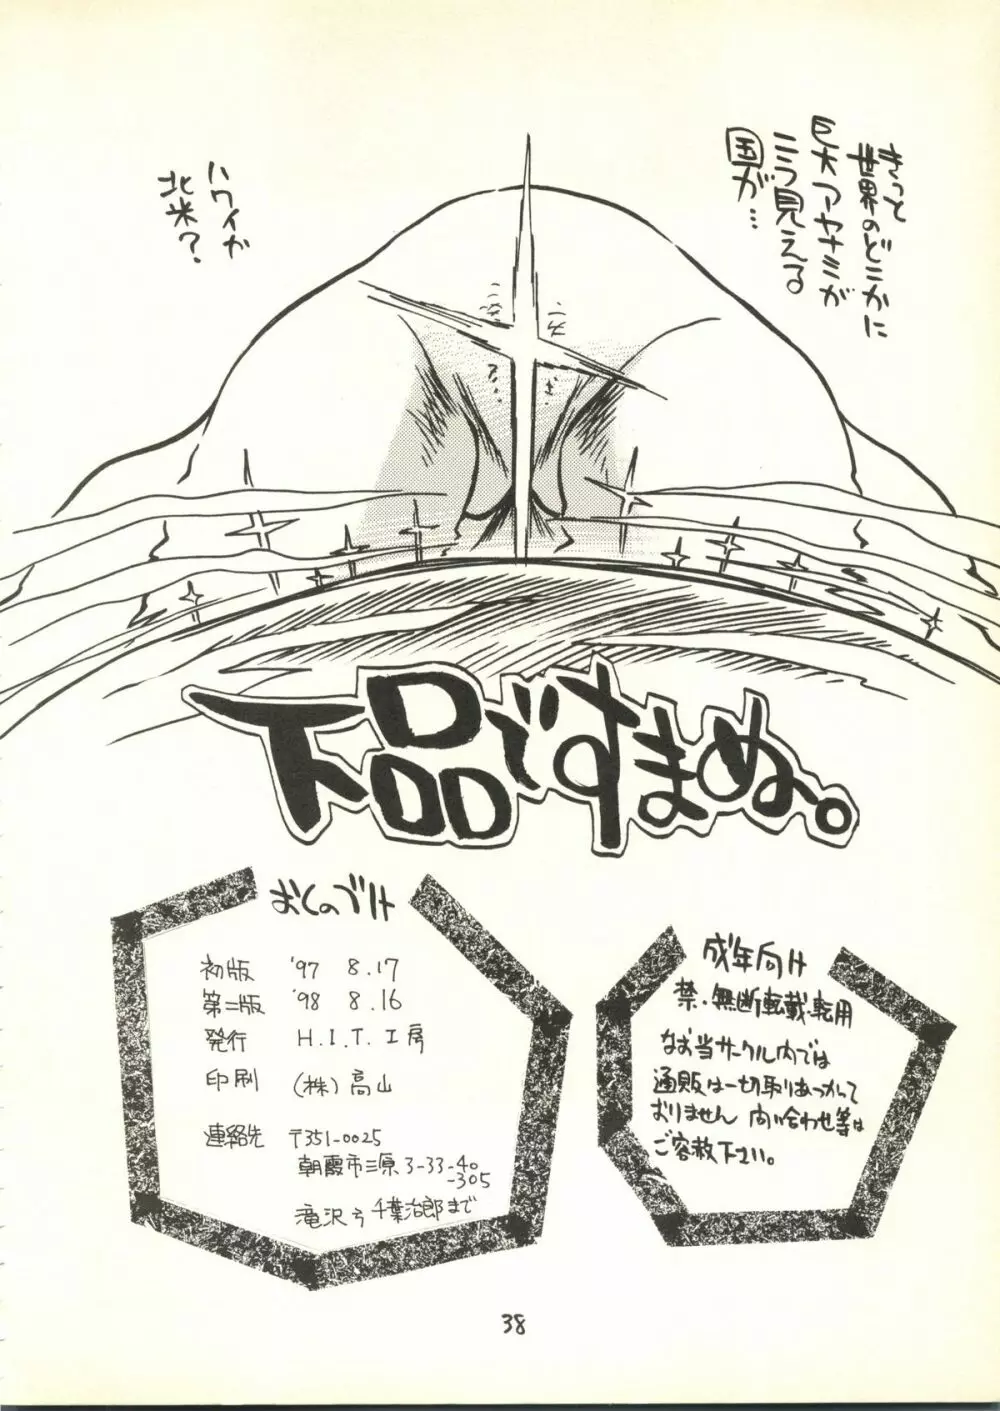 きっと
世界のどこかに
巨大アヤナミが
こう見える
国が…
ハワイか
北米?
下品ですまぬ。
おくのづけ
初版 '97 8.17
第二版 '98 8.16
発行 H.I.T.工房
印刷 (株)高山
連絡先 〒351-0025
朝霞市三原3-33-40
-305
滝沢方千葉治郎まで
成年向け
禁・無断転載・転用
なお当サークル内では
通販は一切取りあつかって
おりません 問い合わせ等は
ご容赦下さい。
38